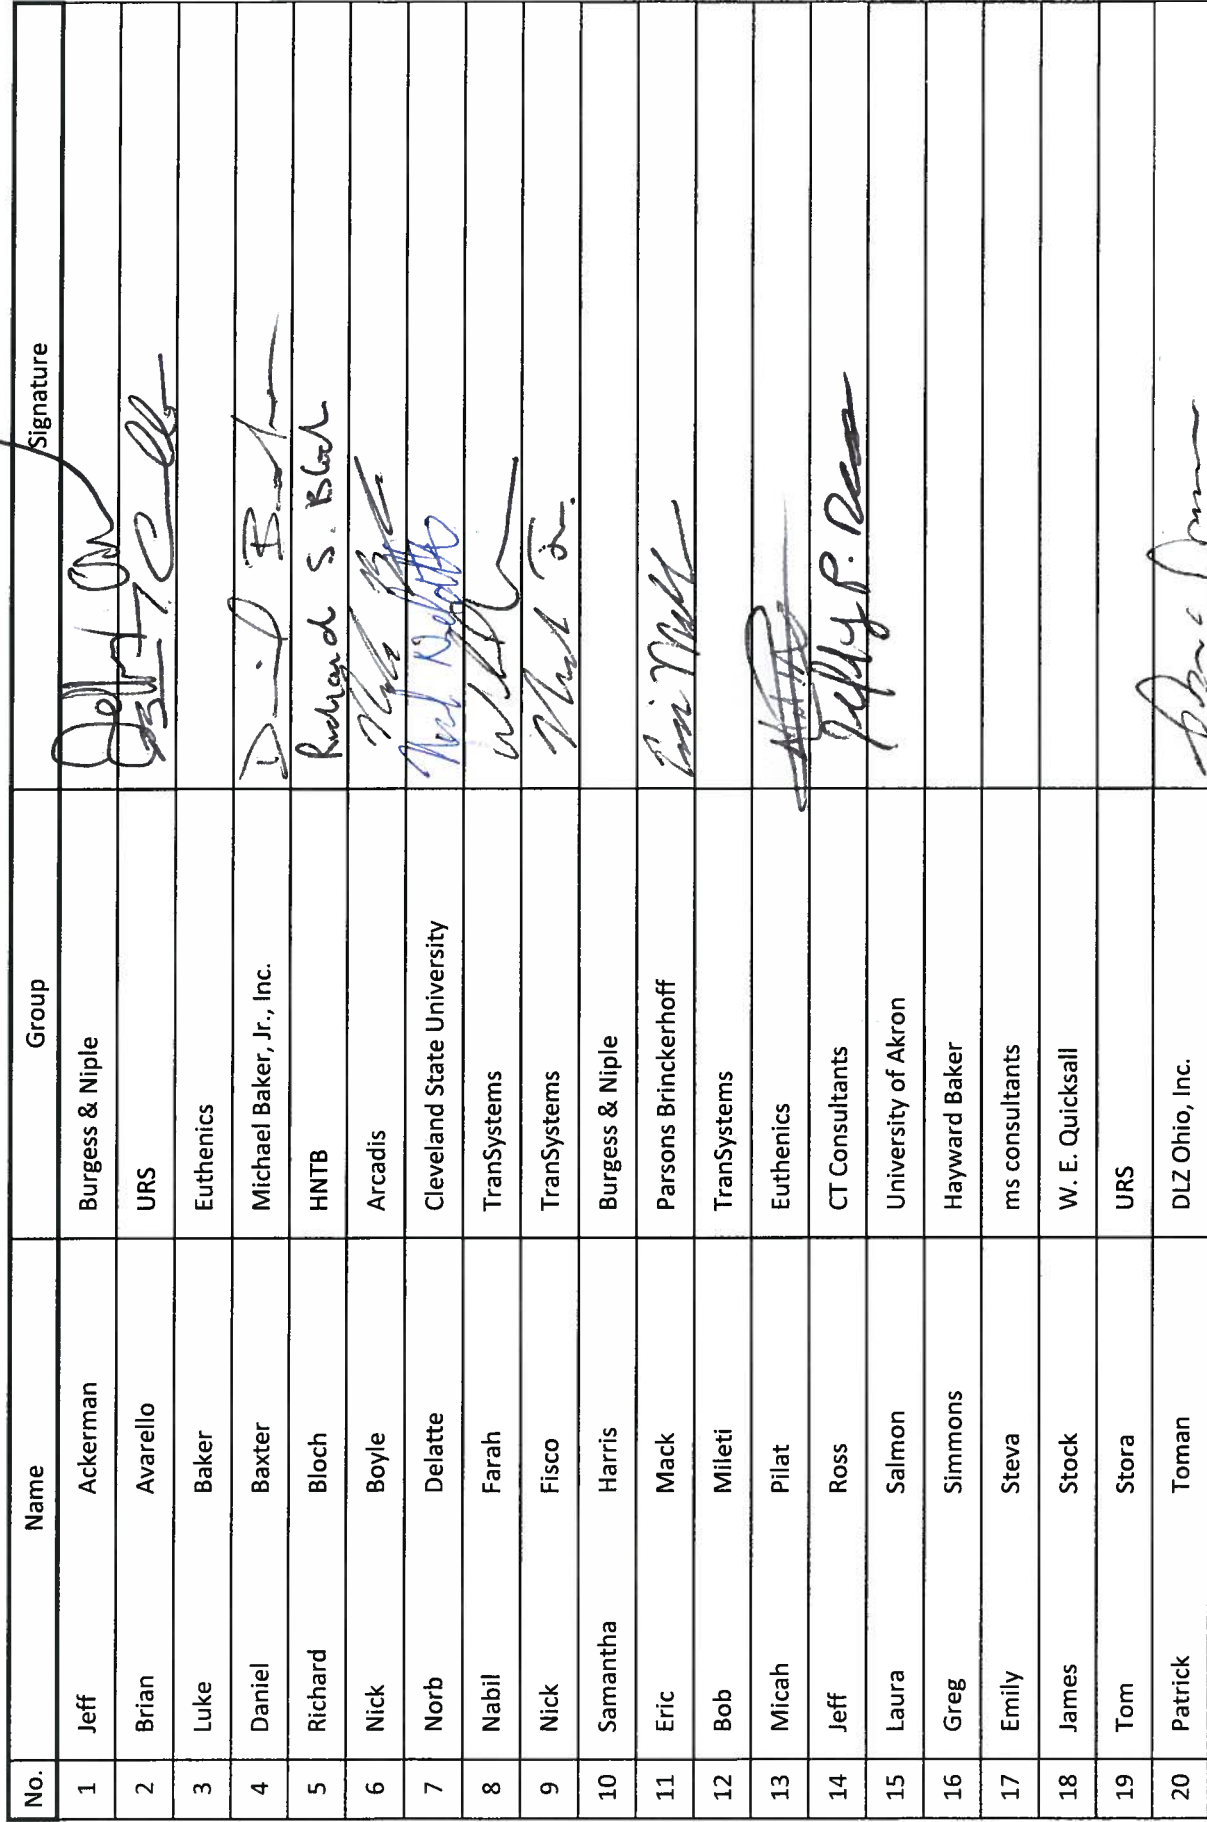 No. Name Group Signature
1 Jeff Ackerman Burgess & Niple
2 Brian Avarello URS
3 Luke Baker Euthenics
4 Daniel Baxter Michael Baker, Jr., Inc.
5 Richard Bloch HNTB Richard S. Bloch
6 Nick Boyle Arcadis
7 Norb Delatte Cleveland State University Norb Delatte
8 Nabil Farah TranSystems
9 Nick Fisco TranSystems
10 Samantha Harris Burgess & Niple
11 Eric Mack Parsons Brinckerhoff
12 Bob Mileti TranSystems
13 Micah Pilat Euthenics
14 Jeff Ross CT Consultants Jeffry P. Ross
15 Laura Salmon University of Akron
16 Greg Simmons Hayward Baker
17 Emily Steva ms consultants
18 James Stock W. E. Quicksall
19 Tom Stora URS
20 Patrick Toman DLZ Ohio, Inc.